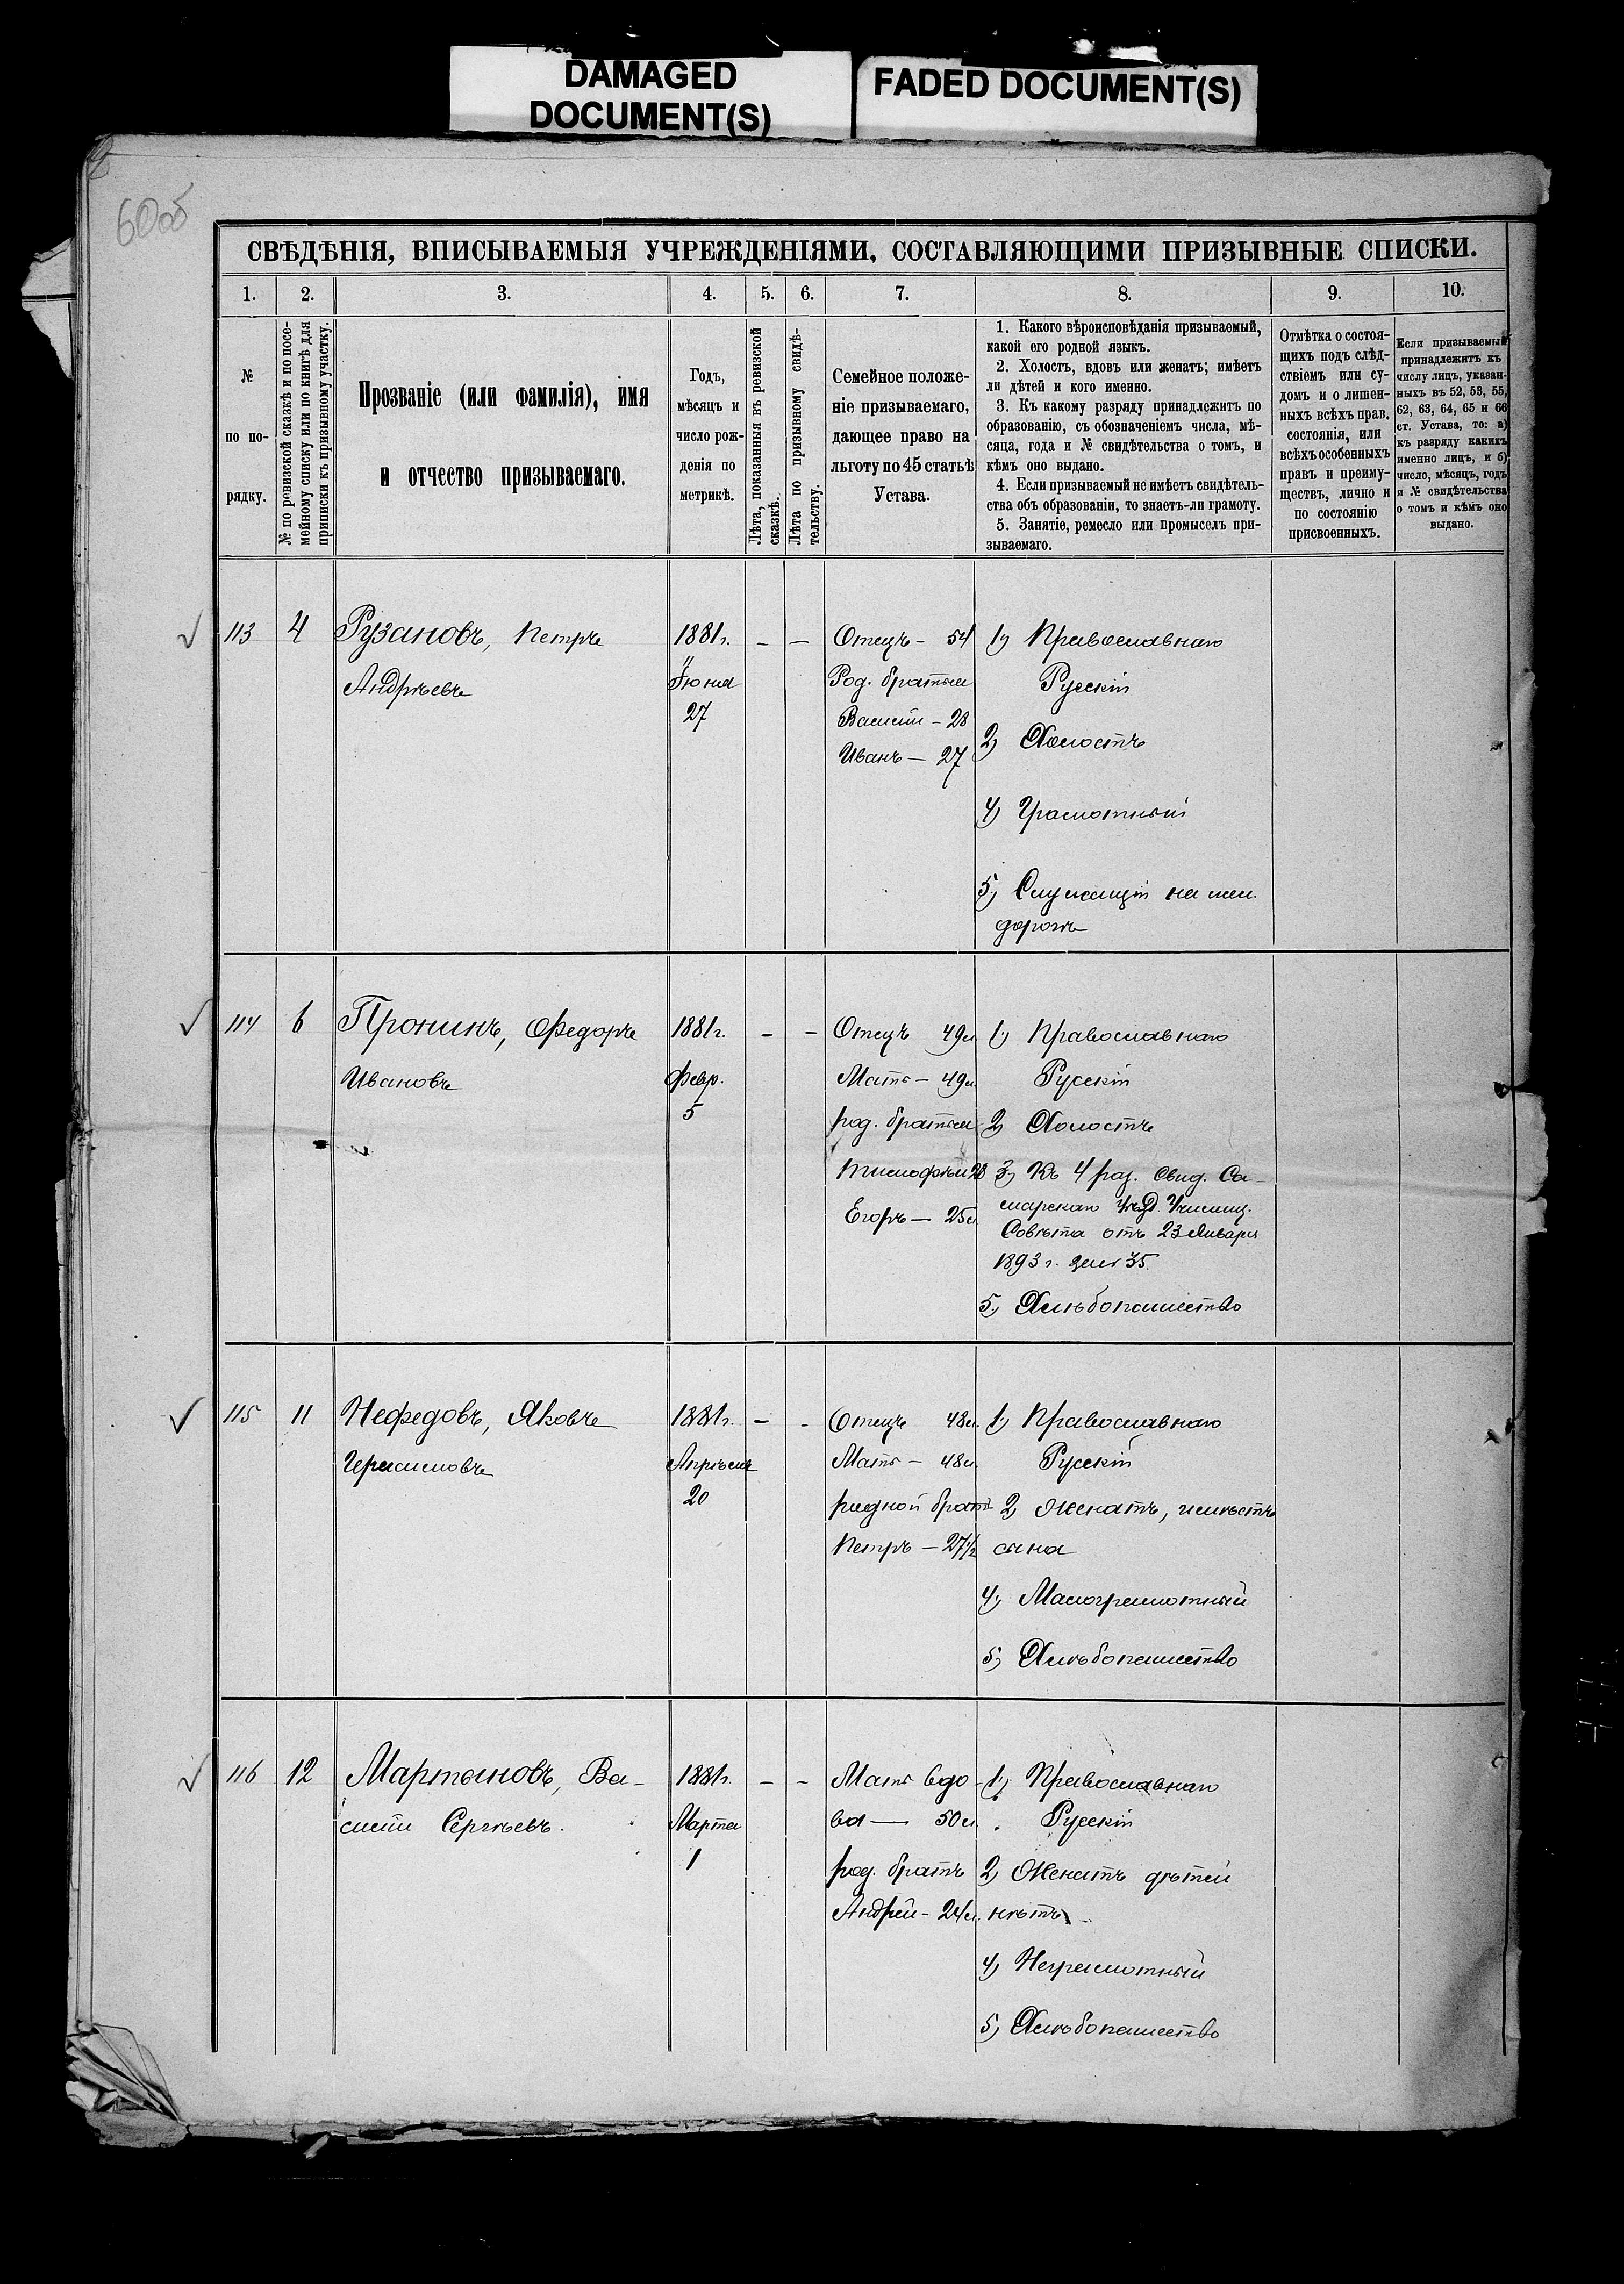 DAMAGED
DOCUMENT(S)
FADED DOCUMENT(S)
60об
СВѢДѢНІЯ, ВПИСЫВАЕМЫЯ УЧРЕЖДЕНІЯМИ, СОСТАВЛЯЮЩИМИ ПРИЗЫВНЫЕ СПИСКИ.
1. 2. 3. 4. 5. 6. 7. 8. 9. 10.
№
по по-
рядку.
№ по ревизской сказкѣ и по посе-
мейному списку или по книгѣ для
приписки къ призывному участку.
Прозваніе (или фамилія), имя
и отчество призываемаго.
Годъ,
мѣсяцъ и
число рож-
денія по
метрикѣ.
Лѣта, показанныя въ ревизской
сказкѣ.
Лѣта по призывному свидѣ-
тельству.
Семейное положе-
ніе призываемаго,
дающее право на
льготу по 45 статьѣ
Устава.
1. Какого вѣроисповѣданія призываемый,
какой его родной языкъ.
2. Холостъ, вдовъ или женатъ; имѣетъ
ли дѣтей и кого именно.
3. Къ какому разряду принадлежитъ по
образованію, съ обозначеніемъ числа, мѣ-
сяца, года и № свидѣтельства о томъ, и
кѣмъ оно выдано.
4. Если призываемый не имѣетъ свидѣтель-
ства объ образованіи, то знаетъ-ли грамоту.
5. Занятіе, ремесло или промыселъ при-
зываемаго.
Отмѣтка о состоя-
щихъ подъ слѣд-
ствіемъ или су-
домъ и о лишен-
ныхъ всѣхъ прав.
состоянія, или
всѣхъ особенныхъ
правъ и преиму-
ществъ, лично и
по состоянію
присвоенныхъ.
Если призываемый
принадлежитъ къ
числу лицъ, указан-
ныхъ въ 52, 53, 55,
62, 63, 64, 65 и 66
ст. Устава, то: а)
къ разряду какихъ
именно лицъ, и б)
число, мѣсяцъ, годъ
и № свидѣтельства
о томъ и кѣмъ оно
выдано.
113 4 Рузановъ, Петръ
Андреѣвъ
1881г.
Іюня
27
— —
Отецъ - 54
Род. братья
Василій - 28
Иванъ — 27
1) Православнаго
Русскій
2) Холостъ
4) Грамотный
5) Служащій на жел.
дорогѣ
114 6 Пронинъ, Федоръ
Ивановъ
1881г.
Февр.
5
- -
Отецъ 49л.
Мать - 49л.
род. братья
Тимофѣй 28
Егоръ — 25л.
1) Православнаго
Русскій
2) Холостъ
3) Къ 4 раз. Свид. Са-
марскаго Уѣзд. Училищ.
Совѣта отъ 23 Января
1893 г. за № 35.
5) Хлѣбопашество
115 11 Нефедовъ, Яковъ
Герасимовъ
1881г.
Апрѣля
20
— -
Отецъ 48л.
Мать - 48л.
родной братъ
Петръ - 27½
1) Православнаго
Русскій
2) Женатъ, имѣетъ
сына
4) Малограмотный
5) Хлѣбопашество
116 12 Мартыновъ, Ва-
силій Сергѣевъ.
1881г.
Марта
1
- -
Мать вдо-
ва — 50л.
род. братъ
Андрей - 24л.
1) Православнаго
Русскій
2) Женатъ дѣтей
нѣтъ
4) Неграмотный
5) Хлѣбопашество